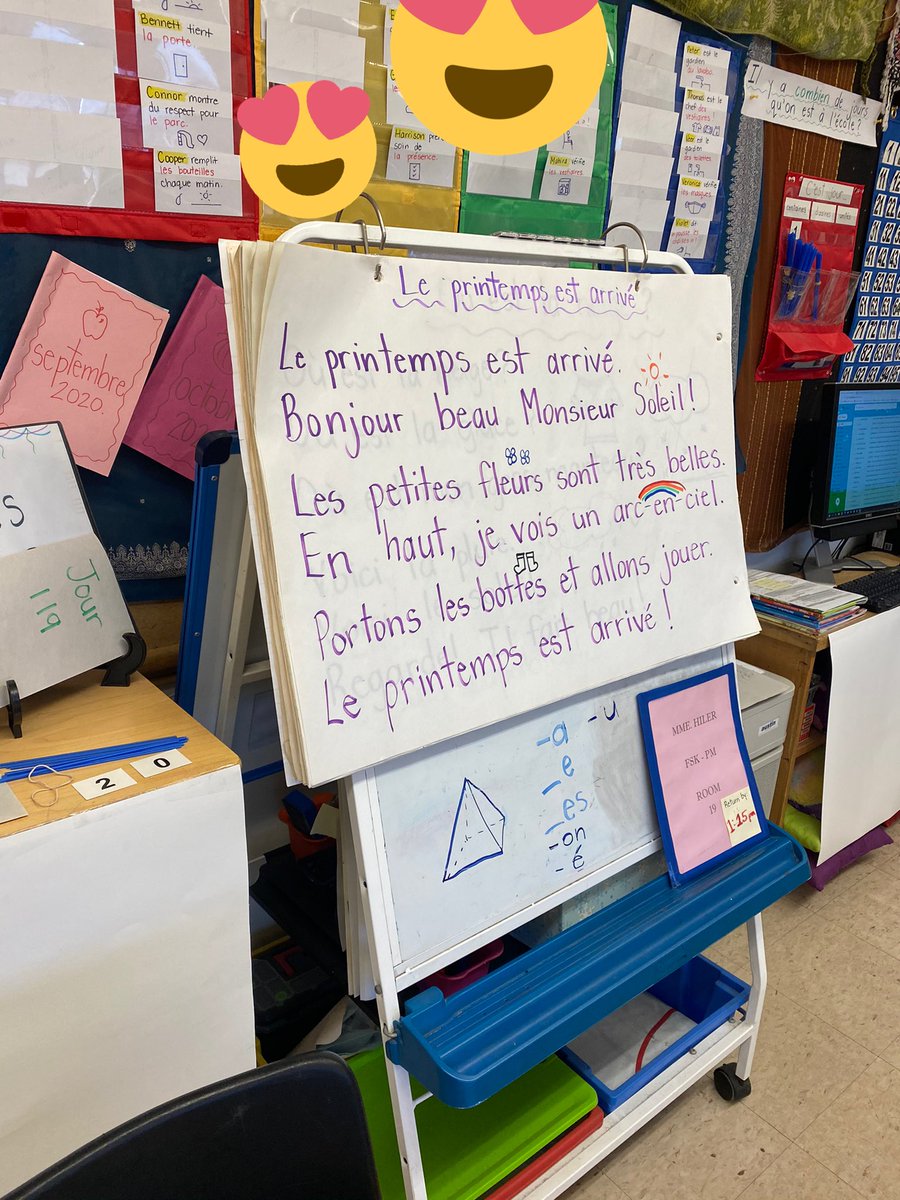 Bennett tient
la porte.
Connor montre
du respect pour
le parc.
Cooper remplit
les bouteilles
chaque matin.
Harrison
soin de
la présence.
Mahira vérifie
les vestiaires
est le
gardien
au lavabo.
Thomas est le
chef des
vestiaires
est le
gardien
des toilettes.
Veronica vérifie
les masques.
Il y a combien de jours
qu'on est à l'école?
C'est jour
centaines
dizaines
unités
septembre
2020.
octo
20
Le printemps est arrivé
Le printemps est arrivé.
Bonjour beau Monsieur Soleil!
Les petites fleurs sont très belles.
En haut, je vois un arc-en-ciel.
Portons les bottes et allons jouer.
Le printemps est arrivé!
Jour
119
2 0
-a -u
-e
-es
-on
-é
MME HILER
FSK - PM
ROOM
19
Return by:
1:15pm
austin